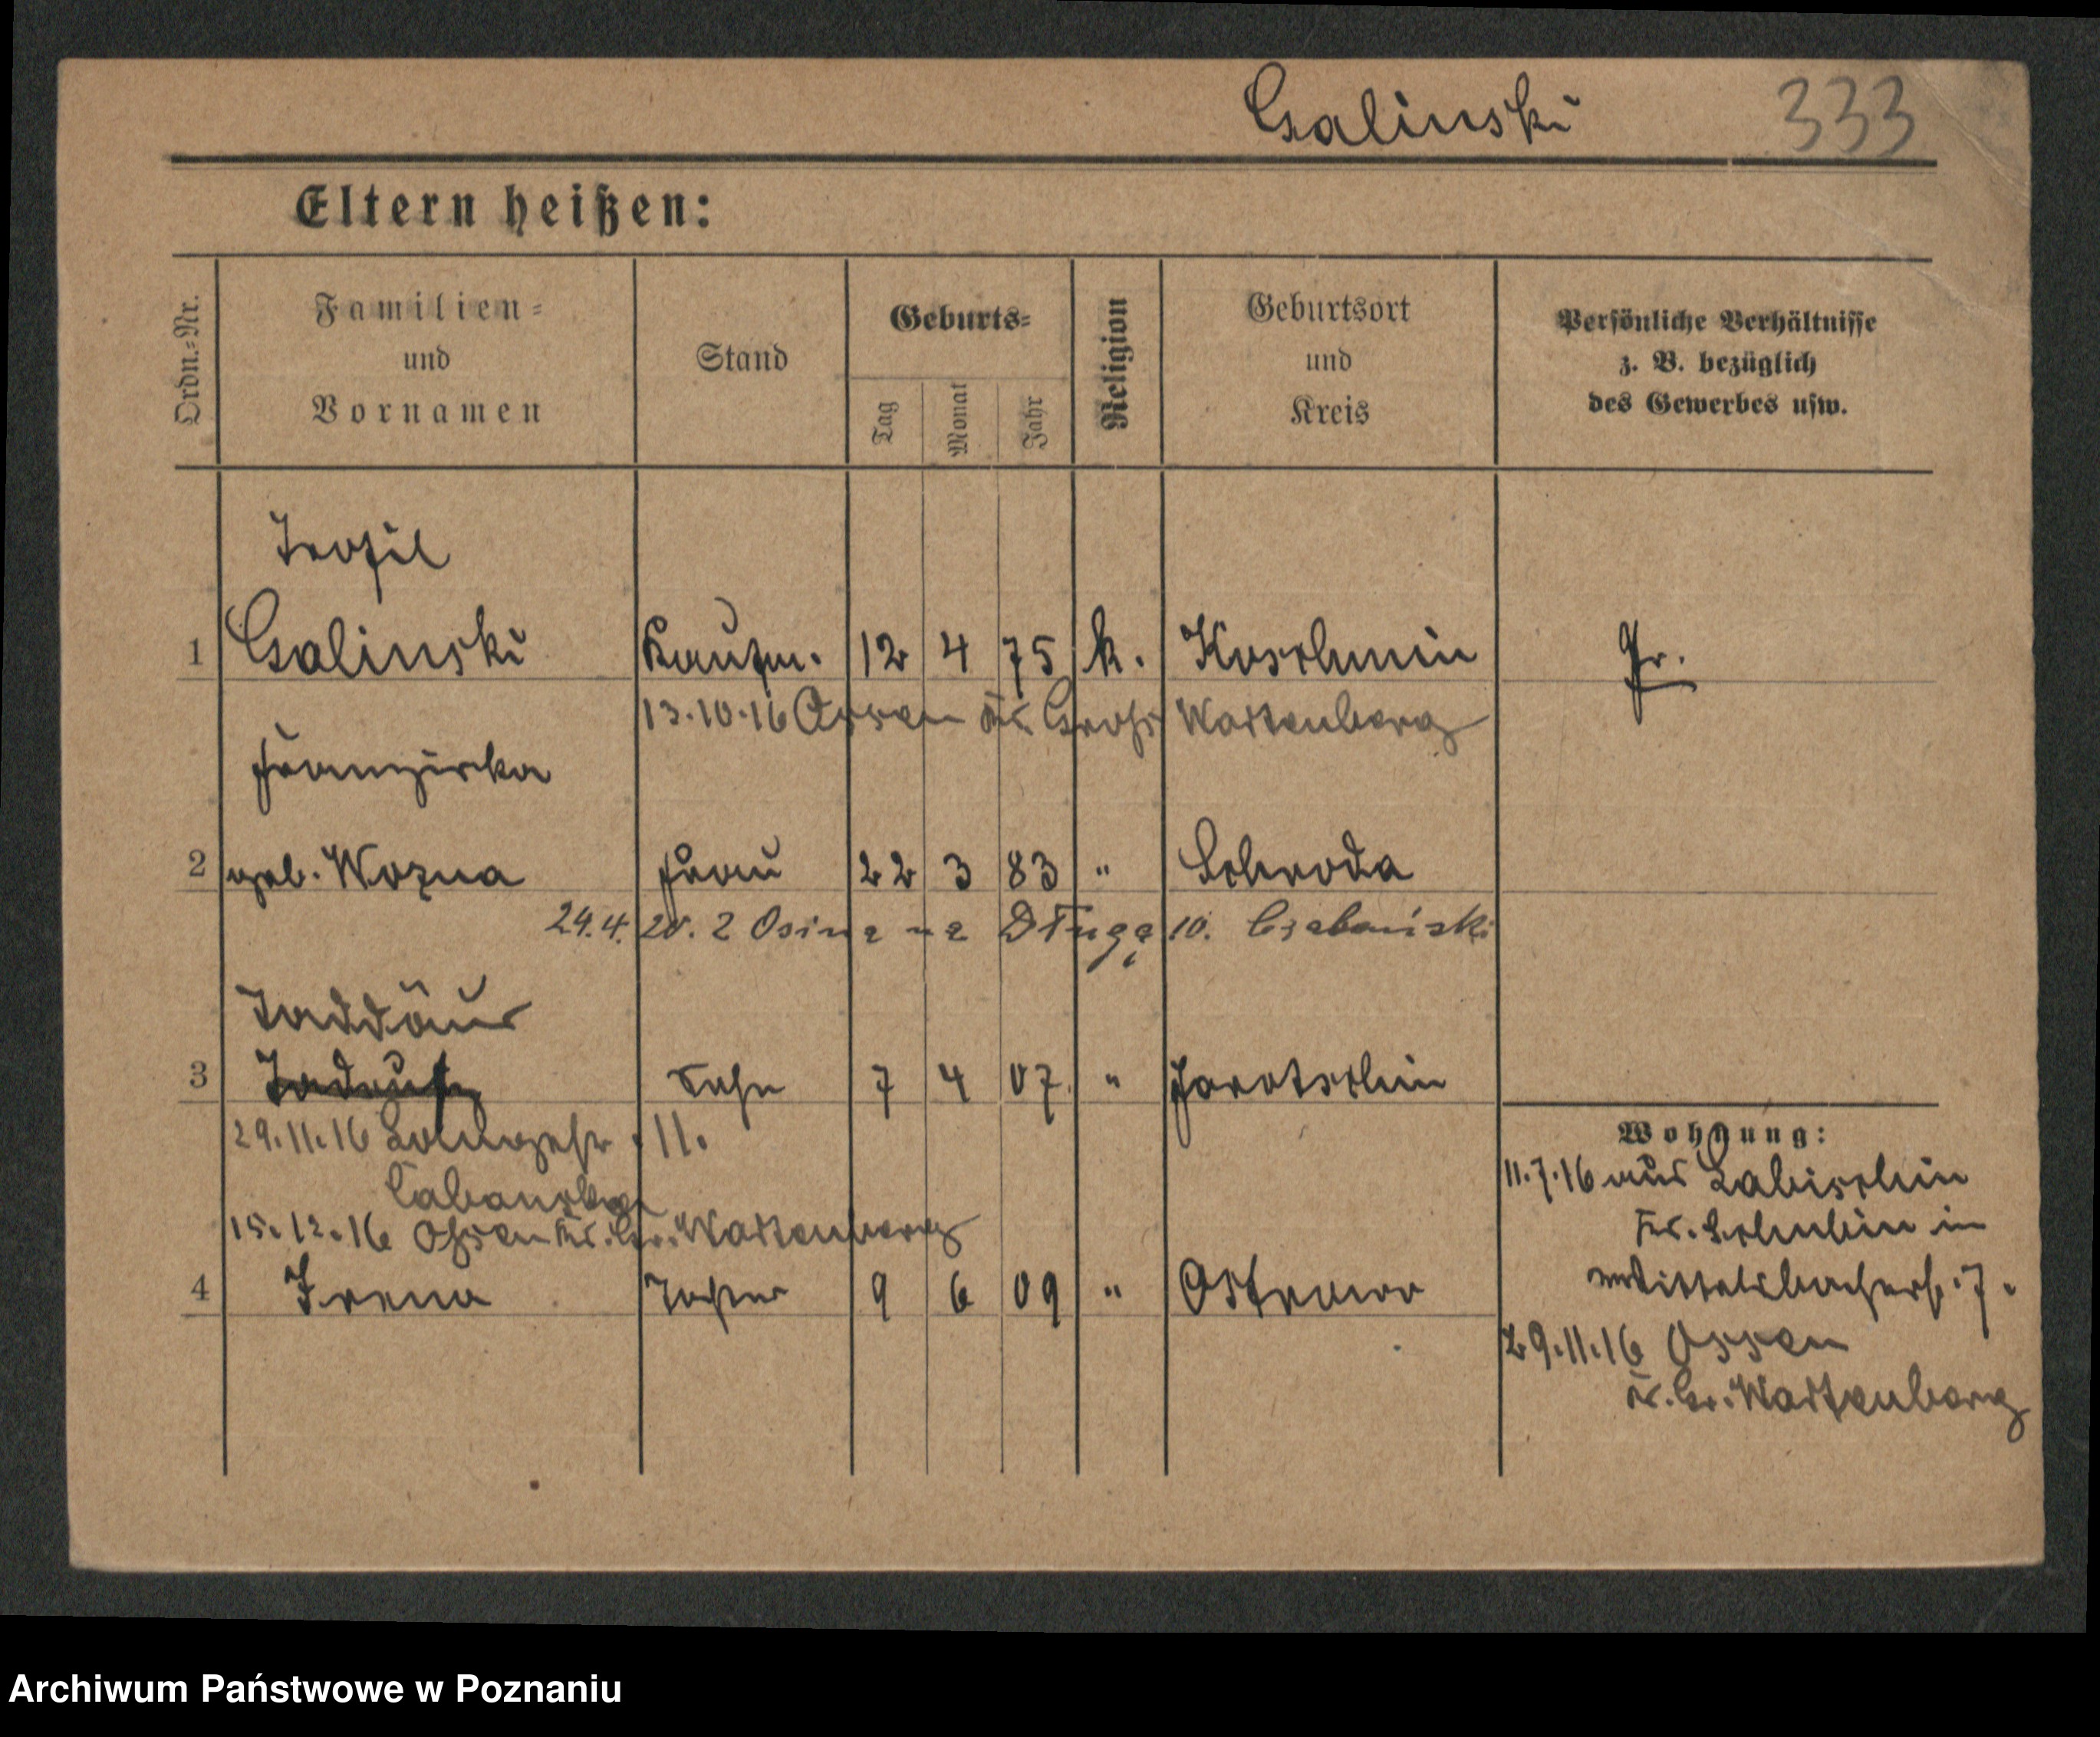 Galinski 333
Eltern heißen:
Ordn.-Nr.
Familien- und Vornamen
Stand
Geburts-
Tag Monat Jahr
Religion
Geburtsort und Kreis
Persönliche Verhältnisse z. B. bezüglich des Gewerbes usw.
Teofil
1 Galinski Kaufm. 12 4 75 k. Koschmin Pr.
13.10.16 Ossen Kr. Groß Wartenberg
Franziska
2 geb. Wozna Frau 22 3 83 " Schroda
24.4. 20. z Osin na Długą 10. Czabański
Taddäus
3 Sohn 7 4 07. " Jarotschin
29.11.16 Langestr. 11.
Cabanska
15.12.16 Ossen Kr. Gr. Wartenberg
4 Irena Tochter 9 6 09 " Ostrowo
Wohnung:
11.7.16 aus Labischin
Kr. Schubin in
Wittelsbacherstr. 7.
29.11.16 Ossen
Kr. Gr. Wartenberg
Archiwum Państwowe w Poznaniu